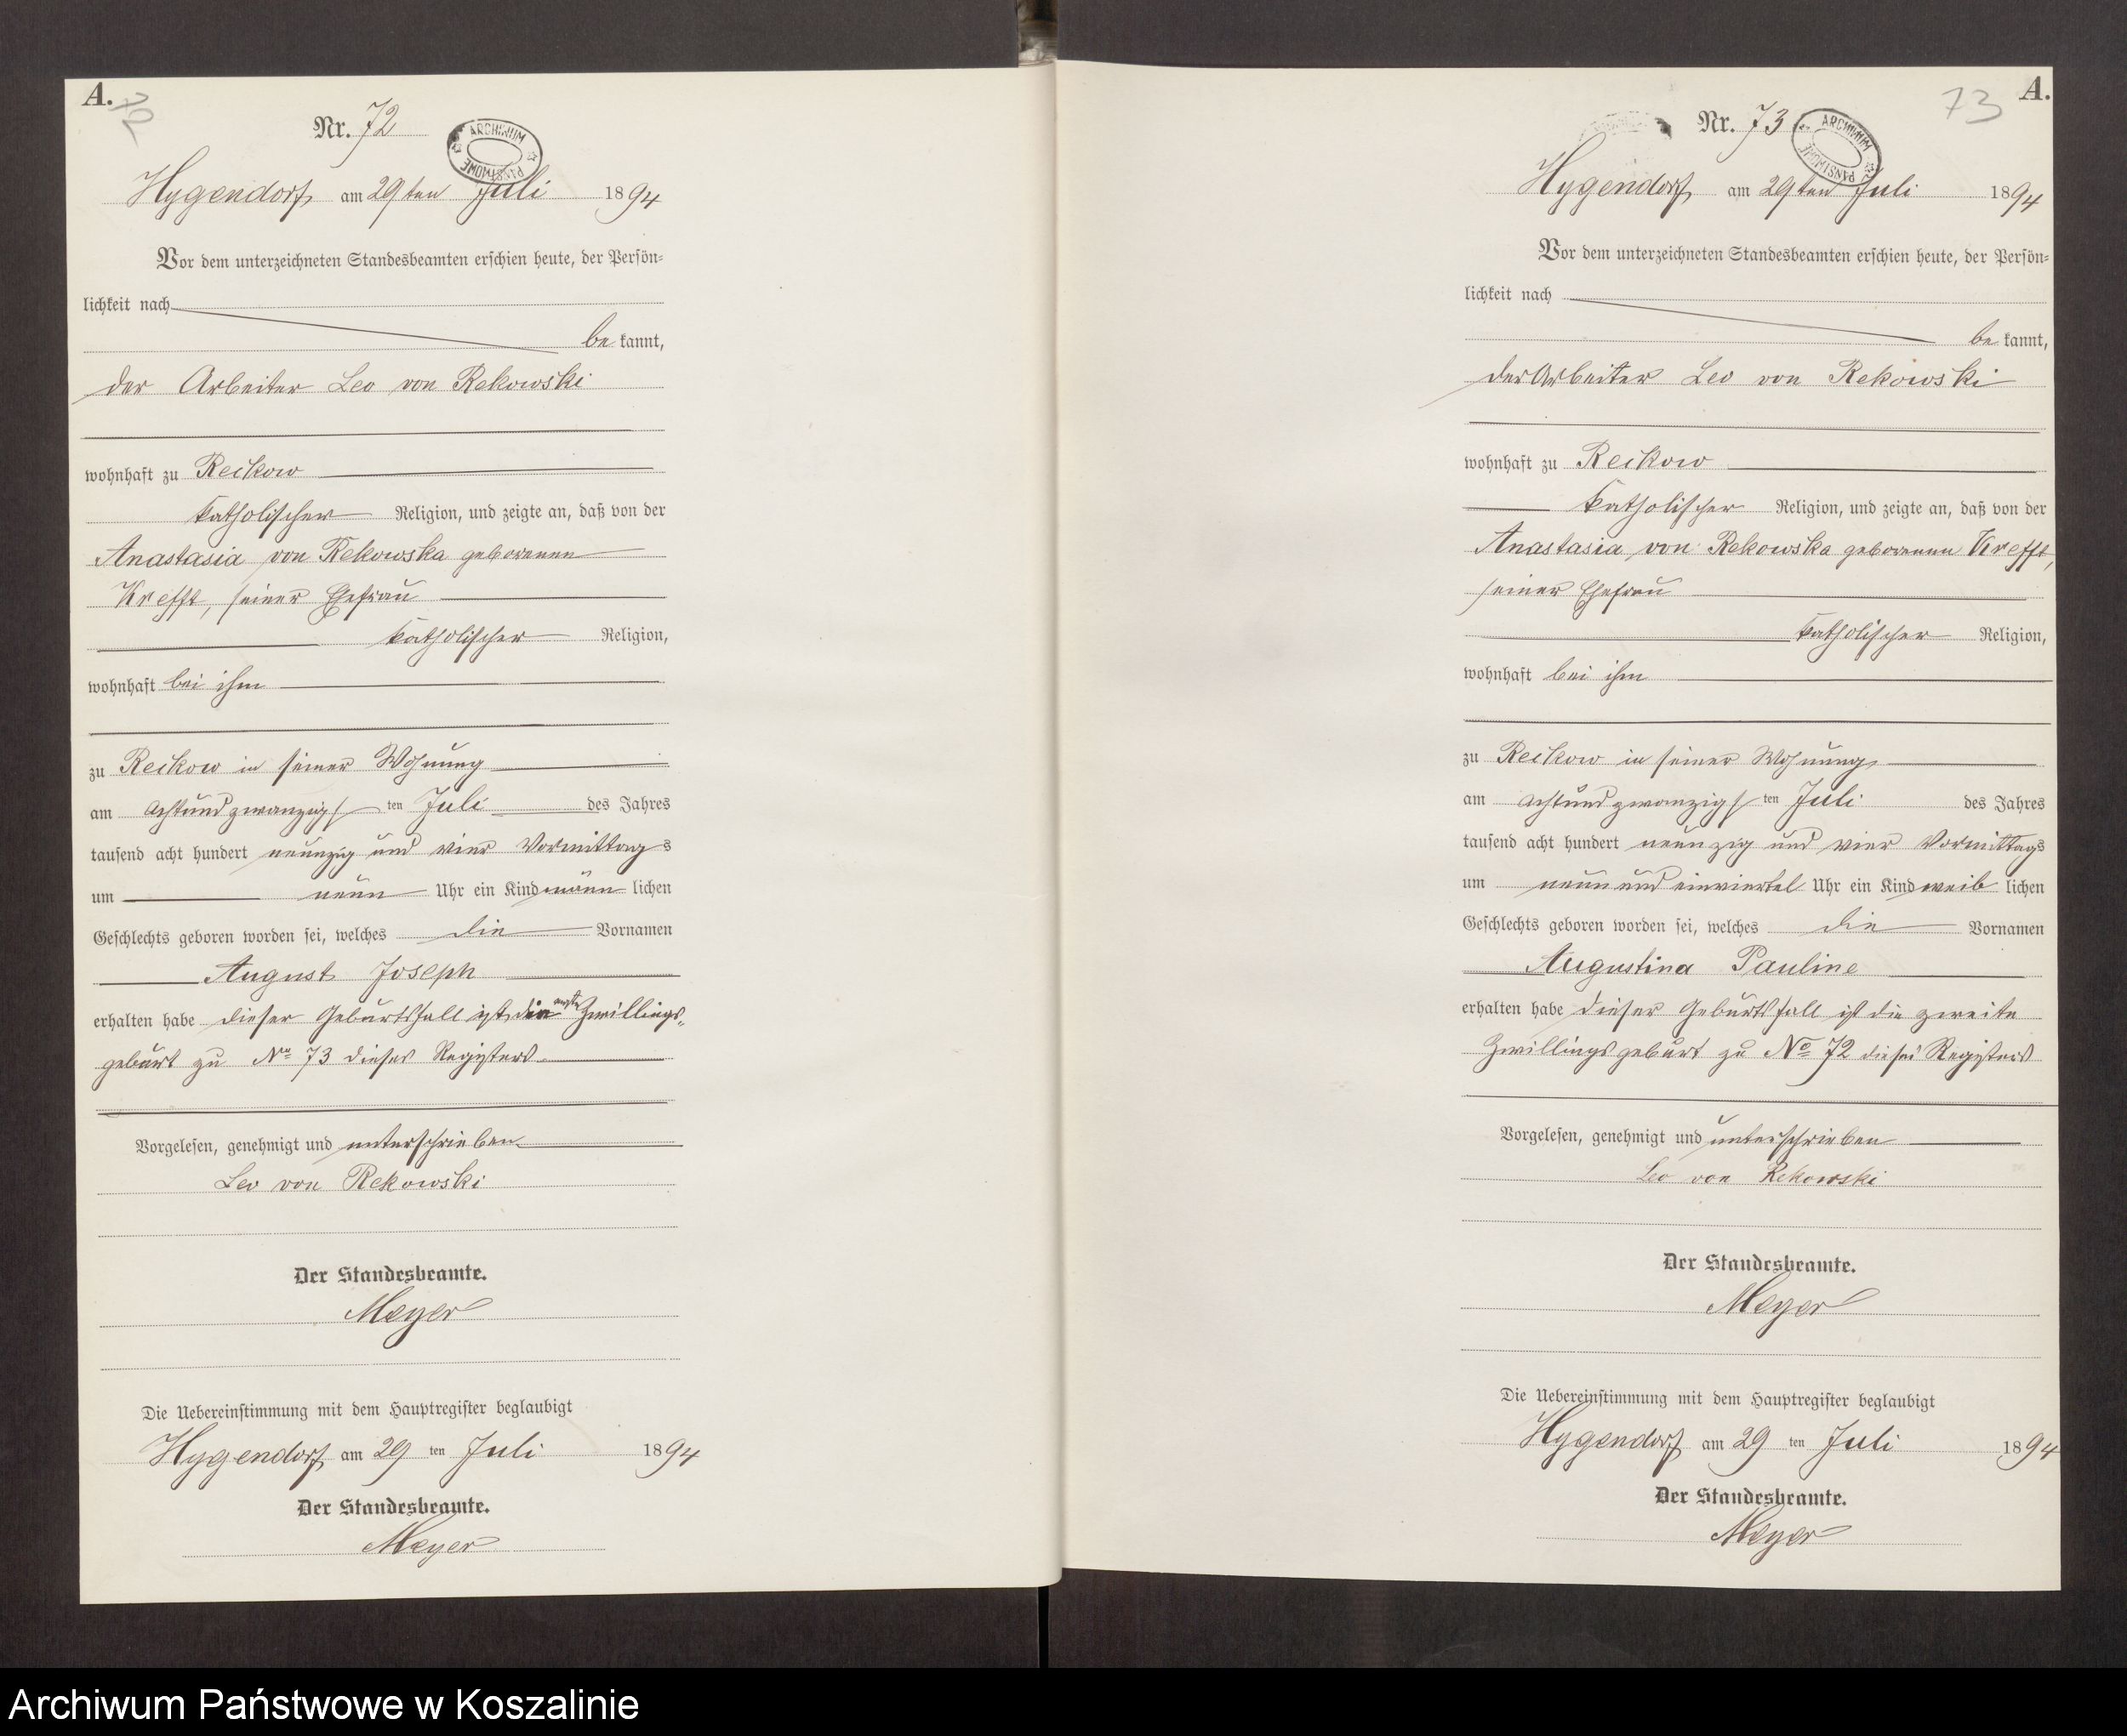 A.
72
Nr. 72
ARCHIWUM PAŃSTWOWE
Hygendorf, am 29ten Juli 1894
Vor dem unterzeichneten Standesbeamten erschien heute, der Persön-
lichkeit nach
be kannt,
der Arbeiter Leo von Rekowski
wohnhaft zu Reckow
katholischer Religion, und zeigte an, daß von der
Anastasia von Rekowska geborenen
Krefft, seiner Ehefrau
katholischer Religion,
wohnhaft bei ihm
zu Reckow in seiner Wohnung
am achtundzwanzigs ten Juli des Jahres
tausend acht hundert neunzig und vier Vormittags
um neun Uhr ein Kind männ lichen
Geschlechts geboren worden sei, welches die Vornamen
August Joseph
erhalten habe dieser Geburtsfall ist die erste Zwillings-
geburt zu No 73 dieses Registers
Vorgelesen, genehmigt und unterschrieben
Leo von Rekowski
Der Standesbeamte.
Meyer
Die Uebereinstimmung mit dem Hauptregister beglaubigt
Hygendorf, am 29 ten Juli 1894
Der Standesbeamte.
Meyer
73
A.
Nr. 73
ARCHIWUM PAŃSTWOWE
Hygendorf, am 29ten Juli 1894
Vor dem unterzeichneten Standesbeamten erschien heute, der Persön-
lichkeit nach
be kannt,
der Arbeiter Leo von Rekowski
wohnhaft zu Reckow
katholischer Religion, und zeigte an, daß von der
Anastasia von Rekowska geborenen Krefft,
seiner Ehefrau
katholischer Religion,
wohnhaft bei ihm
zu Reckow in seiner Wohnung
am achtundzwanzigs ten Juli des Jahres
tausend acht hundert neunzig und vier Vormittags
um neun und einviertel Uhr ein Kind weib lichen
Geschlechts geboren worden sei, welches die Vornamen
Augustina Pauline
erhalten habe dieser Geburtsfall ist die zweite
Zwillingsgeburt zu No 72 dieses Registers
Vorgelesen, genehmigt und unterschrieben
Leo von Rekowski
Der Standesbeamte.
Meyer
Die Uebereinstimmung mit dem Hauptregister beglaubigt
Hygendorf, am 29 ten Juli 1894
Der Standesbeamte.
Meyer
Archiwum Państwowe w Koszalinie